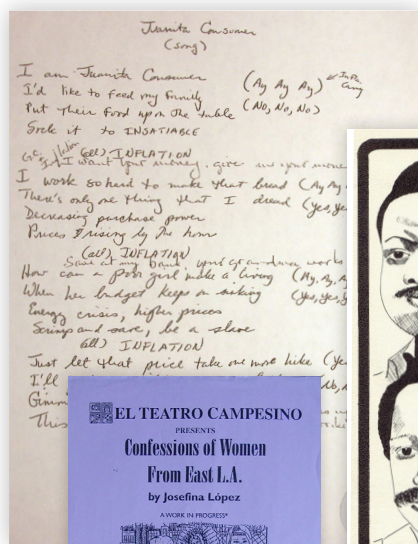 Juanita Consumer
(song)
I am Juanita Consumer (Ay Ay Ay)
I'd like to feed my family
Put their food upon the table (No, No, No)
Sock it to INSATIABLE
(all) INFLATION
I want your money, give me your money
I work so hard to make that bread (Ay,
There's only one thing that I dread (yes, ye
Decreasing purchase power
Prices rising by the hour
(all) INFLATION
How can a poor girl make a living (Ay, Ay, A
When her budget keeps on sinking (Yes, yes, y
Energy crisis, higher prices
Scrimp and save, be a slave
(all) INFLATION
Just let that price take one more hike (Ye
I'll
This
EL TEATRO CAMPESINO
PRESENTS
Confessions of Women
From East L.A.
by Josefina López
A WORK IN PROGRESS*